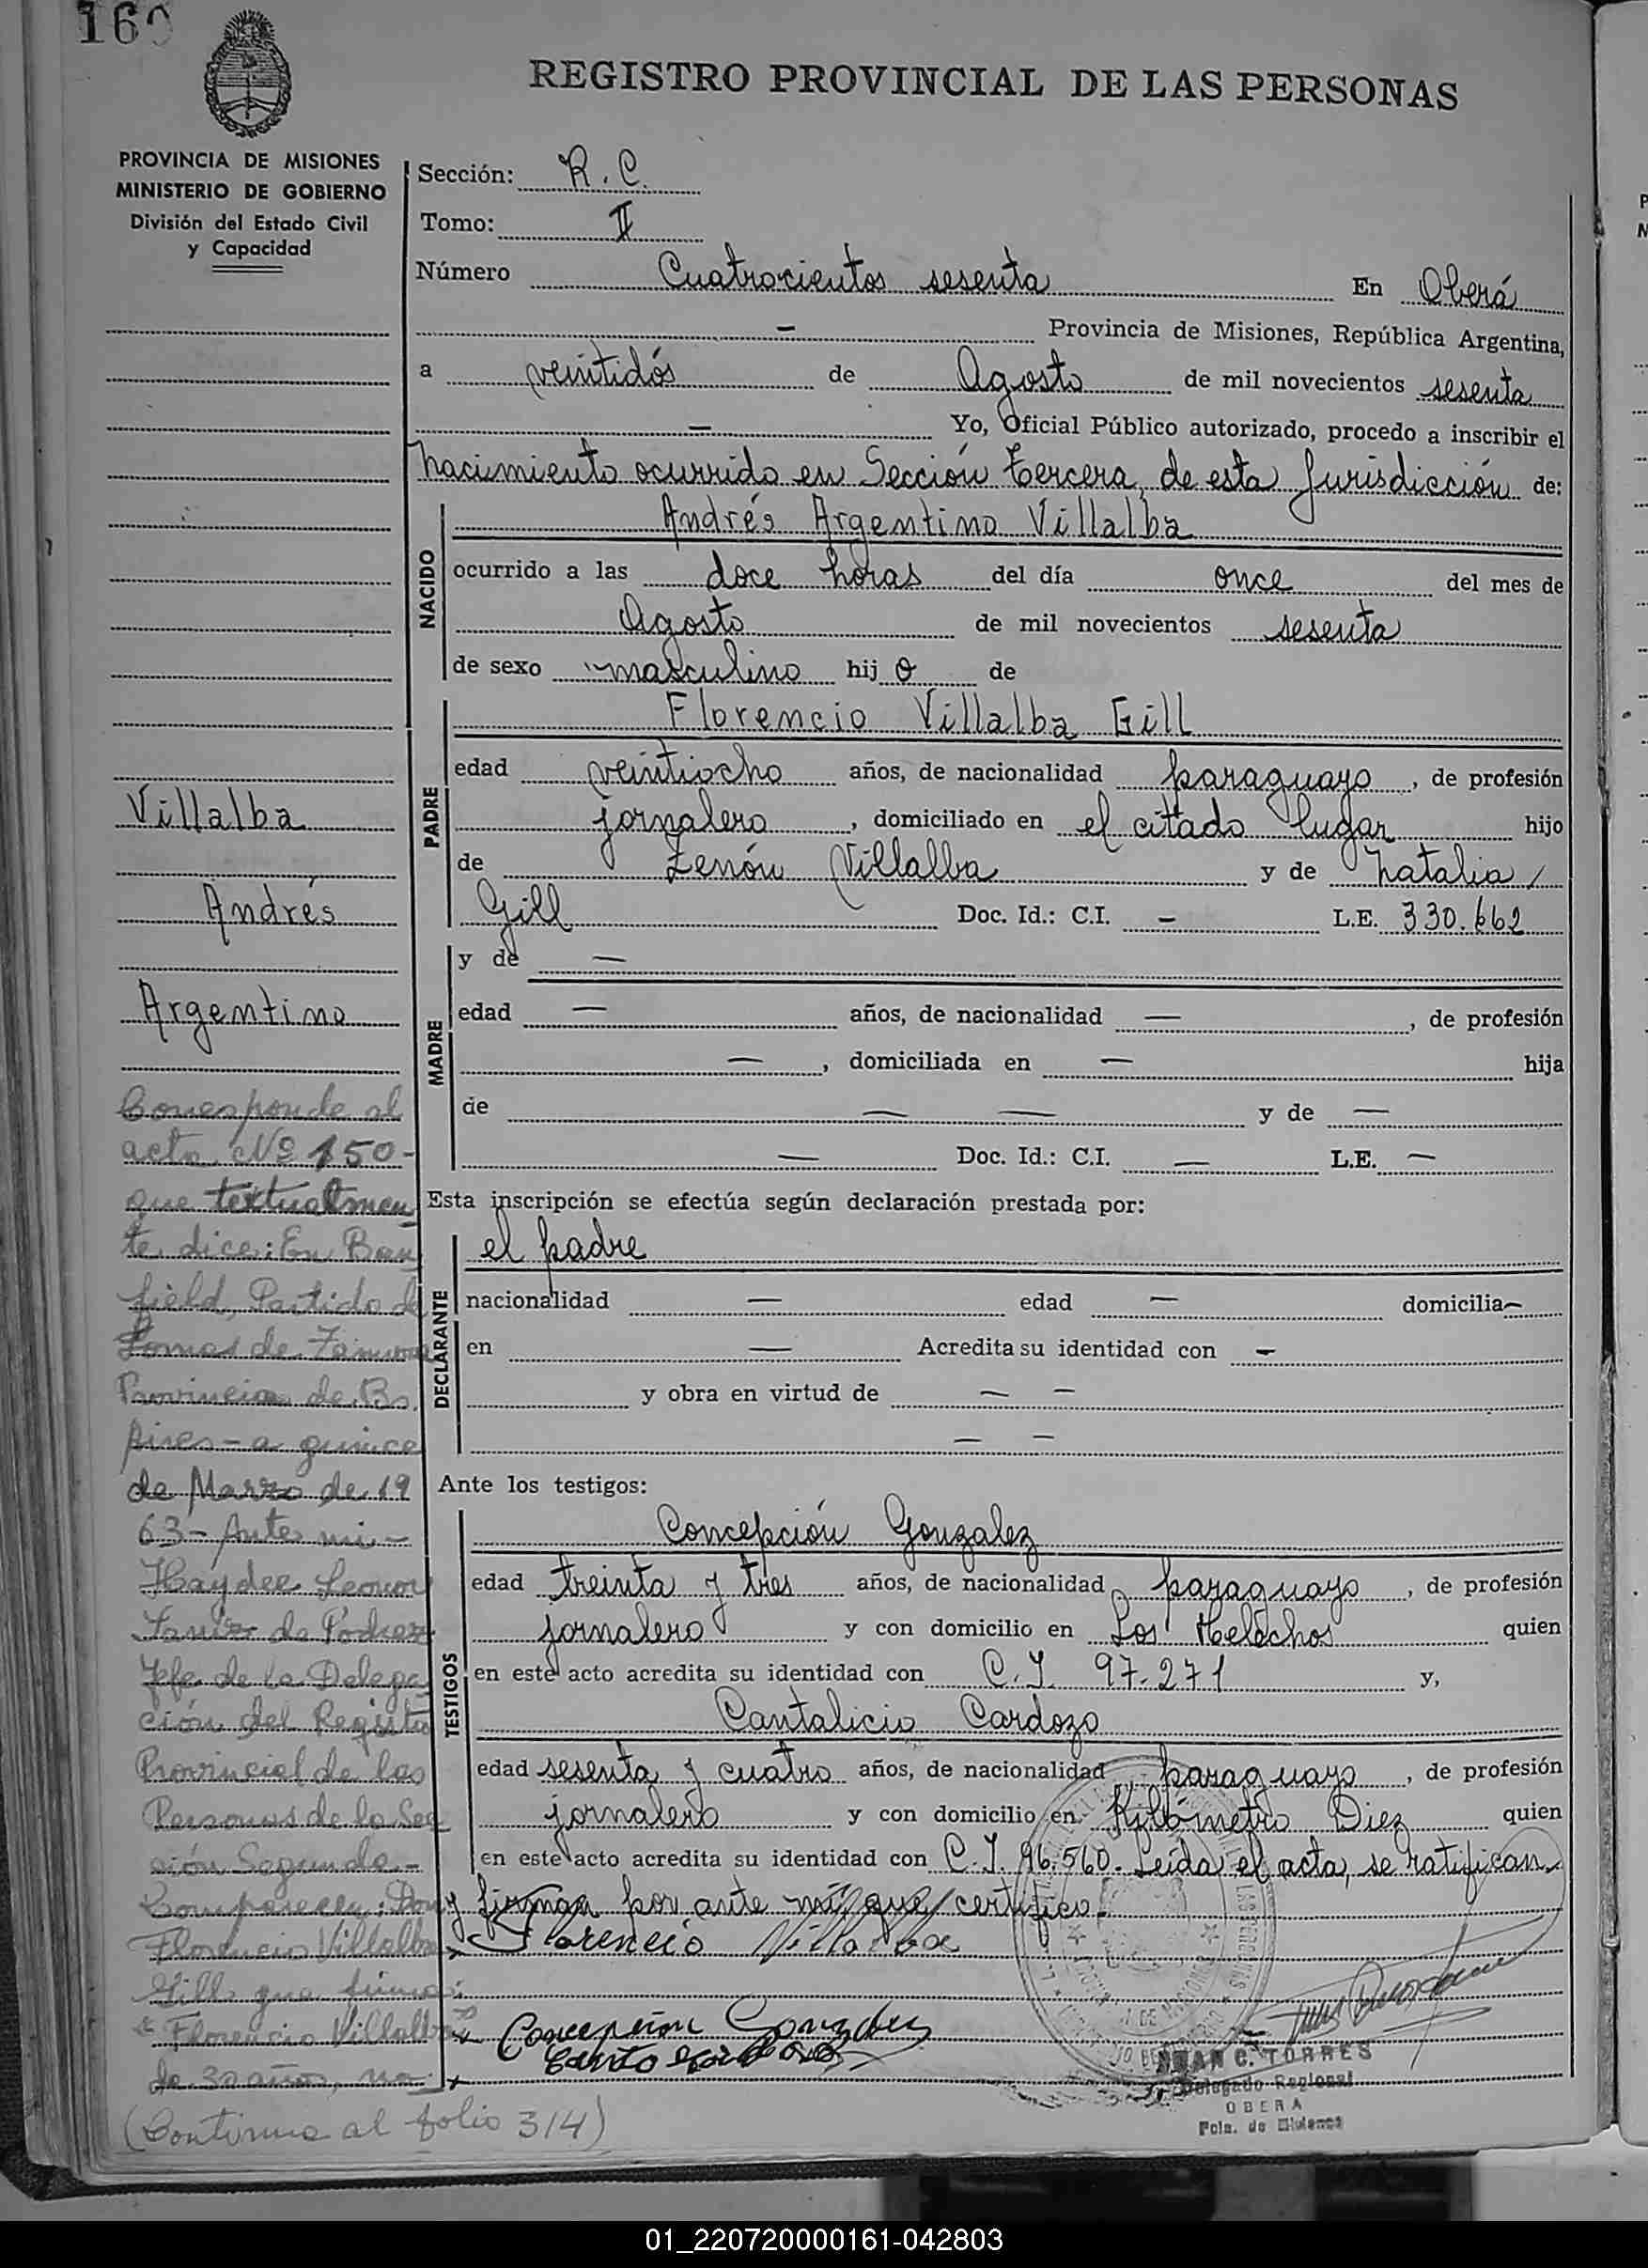 160
REGISTRO PROVINCIAL DE LAS PERSONAS
PROVINCIA DE MISIONES
MINISTERIO DE GOBIERNO
División del Estado Civil
y Capacidad
Sección: R. C.
Tomo: II
Número Cuatrocientos sesenta En Oberá
— Provincia de Misiones, República Argentina,
a veintidós de Agosto de mil novecientos sesenta
— Yo, Oficial Público autorizado, procedo a inscribir el
nacimiento ocurrido en Sección tercera, de esta Jurisdicción de:
NACIDO
Andrés Argentino Villalba
ocurrido a las doce horas del día once del mes de
Agosto de mil novecientos sesenta
de sexo masculino hijo de
PADRE
Florencio Villalba Gill
edad veintiocho años, de nacionalidad paraguayo, de profesión
jornalero, domiciliado en el citado lugar hijo
de Zenón Villalba y de Natalia
Gill Doc. Id.: C.I. — L.E. 330.662
MADRE
y de —
edad — años, de nacionalidad —, de profesión
—, domiciliada en — hija
de — — y de —
— Doc. Id.: C.I. — L.E. —
Esta inscripción se efectúa según declaración prestada por:
DECLARANTE
el padre
nacionalidad — edad — domicilia—
en — Acredita su identidad con —
y obra en virtud de — —
— —
Ante los testigos:
TESTIGOS
Concepción Gonzalez
edad treinta y tres años, de nacionalidad paraguayo, de profesión
jornalero y con domicilio en Los Helechos quien
en este acto acredita su identidad con C.I. 97.271 y,
Cantalicio Cardozo
edad sesenta y cuatro años, de nacionalidad paraguayo, de profesión
jornalero y con domicilio en Kilómetro Diez quien
en este acto acredita su identidad con C.I. 96.560. Leída el acta, se ratifican
y firman por ante mí, que certifico.
Florencio Villalba
Concepcion Gonzalez
JUAN C. TORRES
Delegado Regional
OBERA
Pcia. de Misiones
Villalba
Andrés
Argentino
Corresponde al
acta Nº 150-
que textualmen
te dice: En Ban
field, Partido de
Lomas de Zamora
Provincia de Bs.
Aires - a quince
de Marzo de 19
63 - Ante mi -
Haydee Leonor
de
Jefe de la Delega
ción del Registro
Provincial de las
Personas de la Sec
ción Segunda.-
Comparece: Don
Florencio Villalba
Gill que firma:
"Florencio Villalba"
de 30 años, na
(Continua al folio 314)
01_220720000161-042803